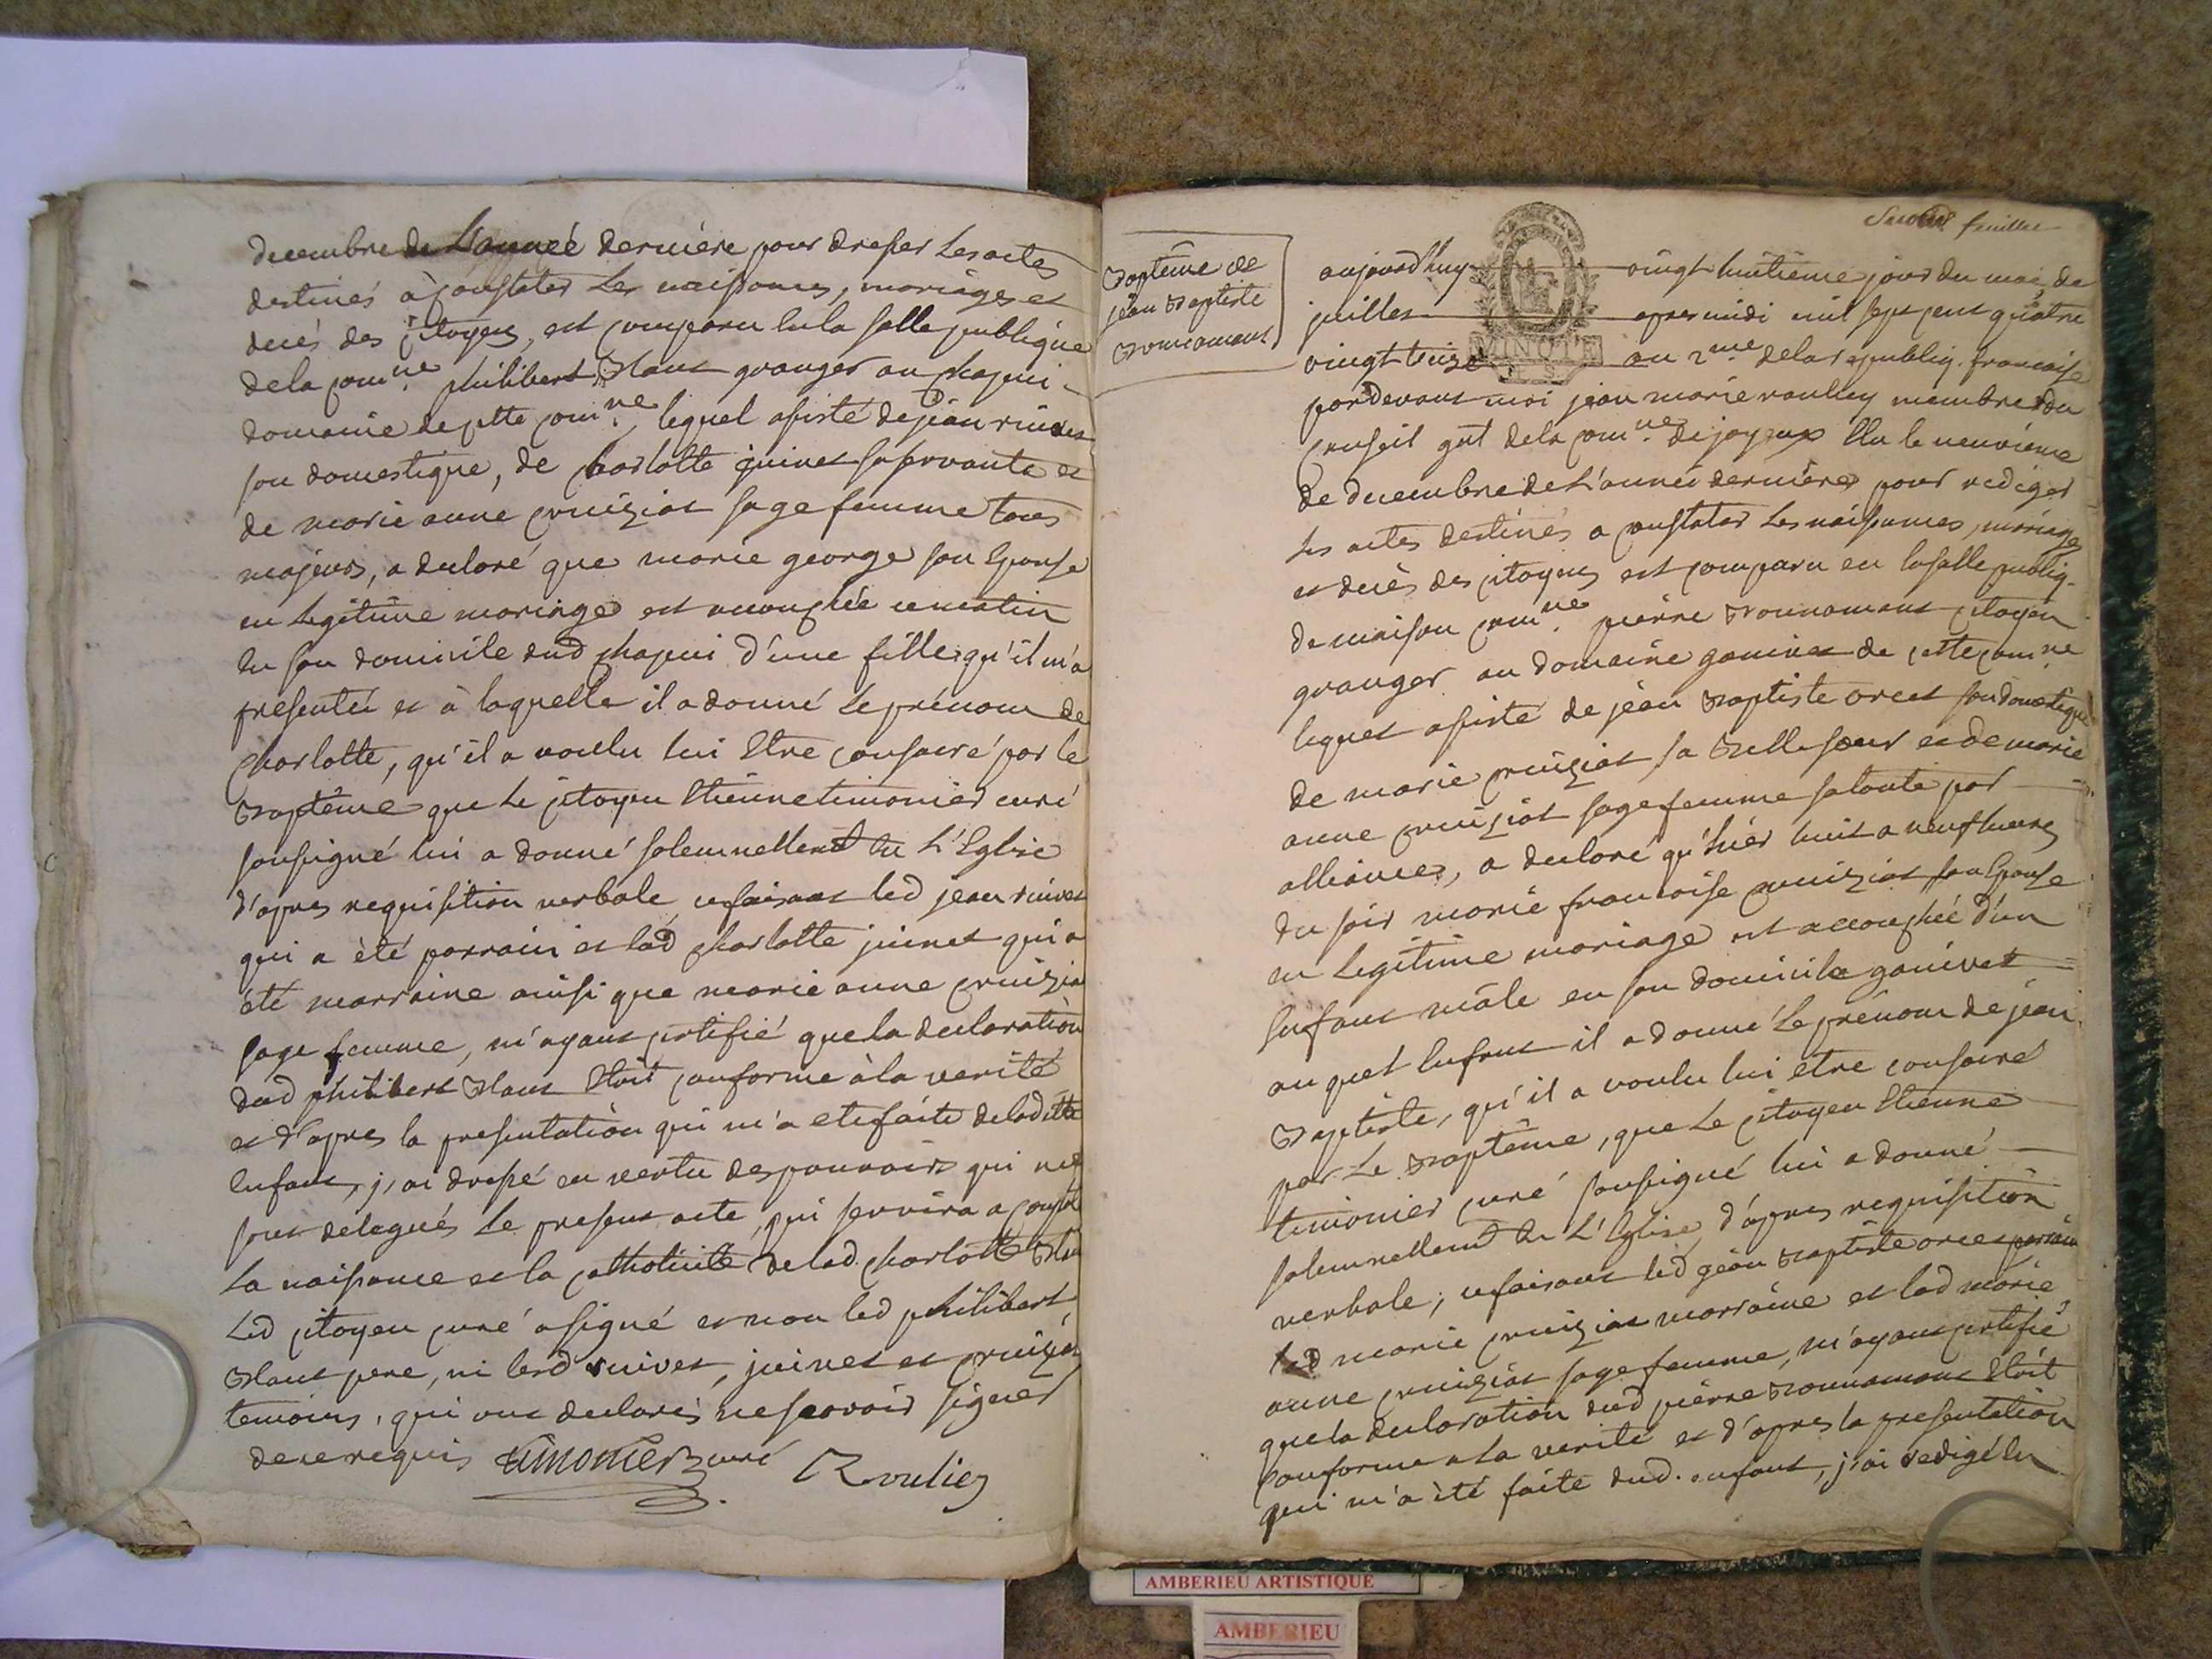 decembre de L'anneé derniére pour dresser Les actes
destinés à constater Les naissances, mariages et
decés des citoyens, est comparu En la salle publique
de la com.ne philibert Blanc granger au chapui
domaine de cette com.ne, lequel assisté de jean
son domestique, de charlotte juinet sa servante et
de marie anne cruiziat sage femme tous
majeurs, a declaré que marie george son Epouse
en Legitime mariage est accouchée ce matin
En son domicile dud chapui d'une fille qu'il m'a
presentée et à laquelle il a donné Le prénom de
charlotte, qu'il a voulu lui Etre consacré par le
Baptême que Le citoyen Etienne timonier curé
soussigné lui a donné solemnellem.t En L'Eglise
d'apres requisition verbale ce faisant led jean
qui a èté parrain et lad charlotte juinet qui a
été marraine ainsi que marie anne cruizia
sage femme, m'ayant certifié que la declaration
dud philibert Blanc Etoit conforme à la verité
et d'apres la presentation qui m'a ete faite de ladite
Enfant, j'ai dressé en vertu des pouvoirs qui me
sont delegués Le present acte, qui servira a
La naissance et la catholicité de lad. charlotte
Led citoyen curé a signé et non led philibert
Blanc pere, ni lesd juinet et
temoins, qui ont declarés ne scavoir signer
de ce requis timonier curé Roulliey
feuillet
Baptême de
jéan Baptiste
Bonnamant
aujourd'huy vingt huitième jour du mois de
juillet apres midi mil sept cent quatre
vingt treize MINUTE an 2.me de la republiq. francaise
pardevant moi jean marie roulliey membre du
conseil g.al de la com.ne de joyeux Elu le neuvième
de decembre de L'année derniere pour rediger
Les actes destinés a constater Les naissances, mariages
et decès des citoyens est comparu en la salle publiq.
de maison com.ne pierre Bonnamant citoyen
granger au domaine ganivet de cette com.ne
lequel assisté de jean Baptiste orcet son domestique
de marie cruiziat sa Belle soeur et de marie
anne cruiziat sage femme sa tante par
alliance, a declaré qu'hier huit a neuf heures
du soir marie francoise cruiziat son Epouse
en Legitime mariage est accouchée d'un
Enfant mâle en son domicile ganivet
au quel Enfant il a donné Le prénom de jean
Baptiste, qu'il a voulu lui être consacré
par Le Baptême, que Le citoyen Etienne
timonier curé soussigné lui a donné
solemnellem.t En L'Eglise, d'apres requisition
verbale; ce faisant led jéan Baptiste orcet parrain
Lad marie cruiziat marraine et lad marie
anne cruiziat sage femme, m'ayant certifié
que la declaration dud pierre Bonnamant Etoit
conforme a La verité et d'apres la presentation
qui m'a été faite dud. enfant, j'ai redigé En
AMBERIEU ARTISTIQUE
AMBERIEU